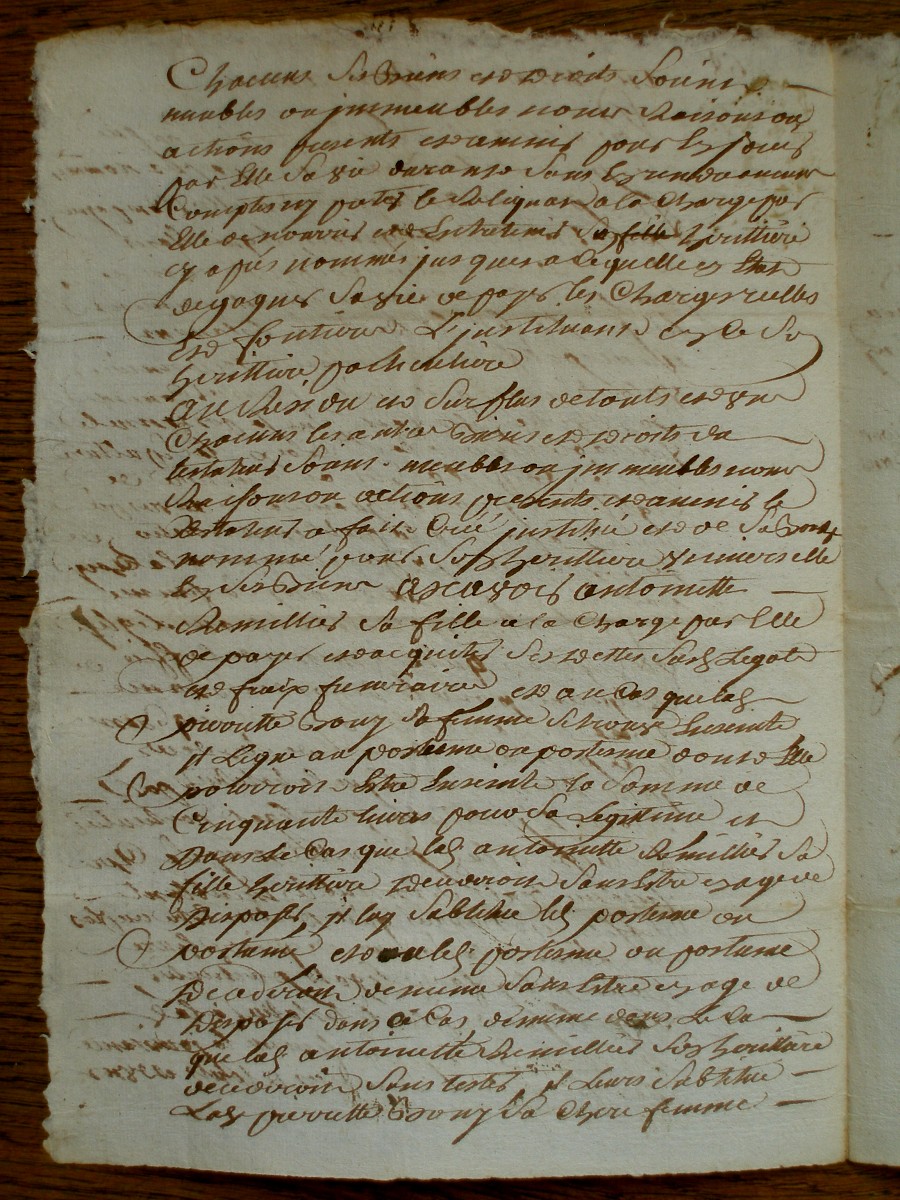 Chacuns ses biens et droits soient
meubles ou jmmeubles noms Raisons ou
actions presents et avenir pour En jouir
par Elle sa vie durante sans En rendre aucun
Compte ny prêter le Reliqua a la Charge par
Elle de nourrir et Entretenir sa fille heritiere
cy apres nommée jusques a ce quelle en Etat
de gagner sa vie de payer les Charges reelles
et fonciere L'jnstituant en ce Son
heritiere particuliere
Au Residu et surplus de touts et un
Chacuns les autres biens et droits du
testateur soient meubles ou jmmeubles noms
Raisons ou actions presents et avenir le
testateur a fait Creé jnstitué et de sa bouche
nommé pour son heritiere universelle
En ses biens ascavoir antoinette
Remillier sa fille a la Charge par Elle
de payer et acquitter ses dettes susd Legats
et fraix funeraire et au Cas que lad
pierrette bouz sa femme se trouve Enceinte
jl Legue au postume ou postume dont Elle
pourroit Etre Enceinte la somme de
Cinquante livres pour sa Legitime et
Dans Le Cas que lad antoinette Remillier sa
fille heritiere decederoit sans Etre en age de
Disposer, jl luy substitue led postume ou
postume et ou led postume ou postume
decederoit de meme sans Etre en age de
Disposer dans ce Cas, de meme dans Le Cas
que lad antoinette Remillier son heritiere
decederoit sans tester, jl Leurs substitue
Lad pierrette bouz sa Chere femme